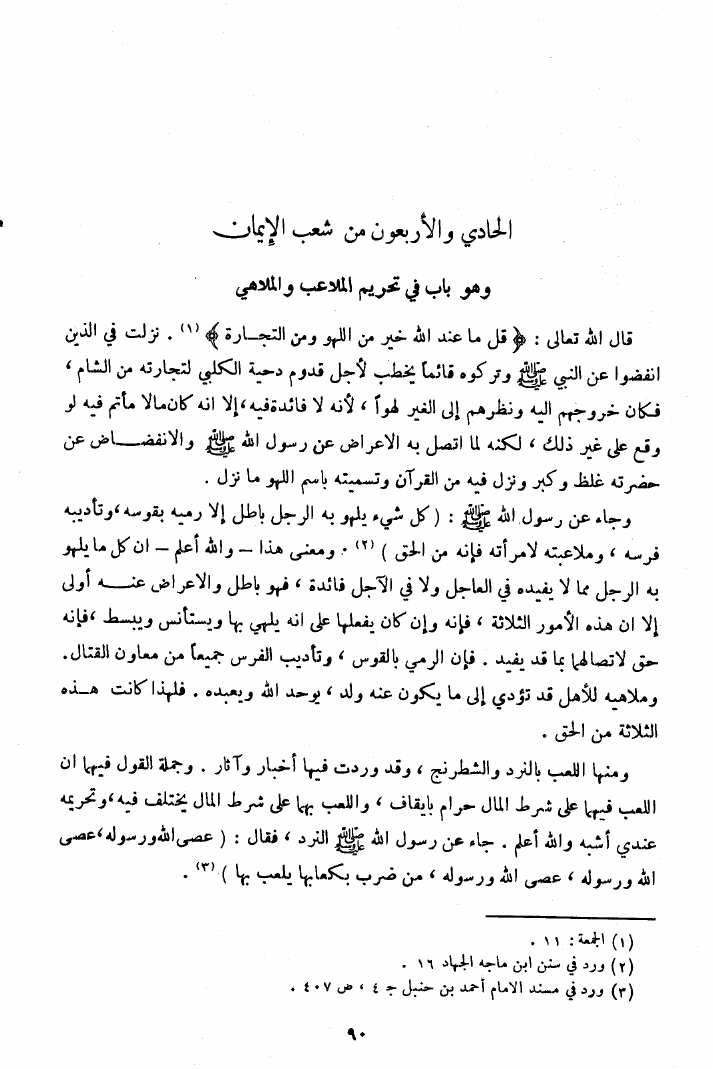 الحادي والأربعون من شعب الإيمان
وهو باب في تحريم الملاعب والملاهي
قال الله تعالى : ﴿ قل ما عند الله خير من اللهو ومن التجـارة ﴾ (١) . نزلت في الذين
انفضوا عن النبي ﷺ وتركوه قائماً يخطب لأجل قدوم دحية الكلبي لتجارته من الشام ،
فكان خروجهم اليه ونظرهم إلى الغير لهواً ، لأنه لا فائدةفيه،إلا انه كان‌مالا مأثم فيه لو
وقع على غير ذلك ، لكنه لما اتصل به الاعراض عن رسول الله ﷺ والانفضــاض عن
حضرته غلظ وكبر ونزل فيه من القرآن وتسميته باسم اللهو ما نزل .
وجاء عن رسول الله ﷺ : ( كل شيء يلهو به الرجل باطل إلا رميه بقوسه،وتأديبه
فرسه ، وملاعبته لامرأته فإنه من الحق ) (٢) . ومعنى هذا – والله أعلم – ان كل ما يلهو
به الرجل مما لا يفيده في العاجل ولا في الآجل فائدة ، فهو باطل والاعراض عنــه أولى
إلا ان هذه الأمور الثلاثة ، فإنه وإن كان يفعلها على انه يلهي بها ويستأنس ويبسط ،فإنه
حق لاتصالهما بما قد يفيد . فإن الرمي بالقوس ، وتأديب الفرس جميعاً من معاون القتال.
وملاهيه للأهل قد تؤدي إلى ما يكون عنه ولد ، يوحد الله ويعبده . فلهذا كانت هــذه
الثلاثة من الحق .
ومنها اللعب بالنرد والشطرنج ، وقد وردت فيها أخبار وآثار . وجملة القول فيهما ان
اللعب فيهما على شرط المال حرام بايقاف ، واللعب بهما على شرط المال يختلف فيه،وتحريمه
عندي أشبه والله أعلم . جاء عن رسول الله ﷺ النرد ، فقال : ( عصى الله ورسوله،عصى
الله ورسوله ، عصى الله ورسوله ، من ضرب بكعابها يلعب بها ) (٣) .
(١) الجمعة : ١١ .
(٢) ورد في سنن ابن ماجه الجهاد ١٦ .
(٣) ورد في مسند الامام أحمد بن حنبل جـ ٤ ، ص ٤٠٧ .
٩٠